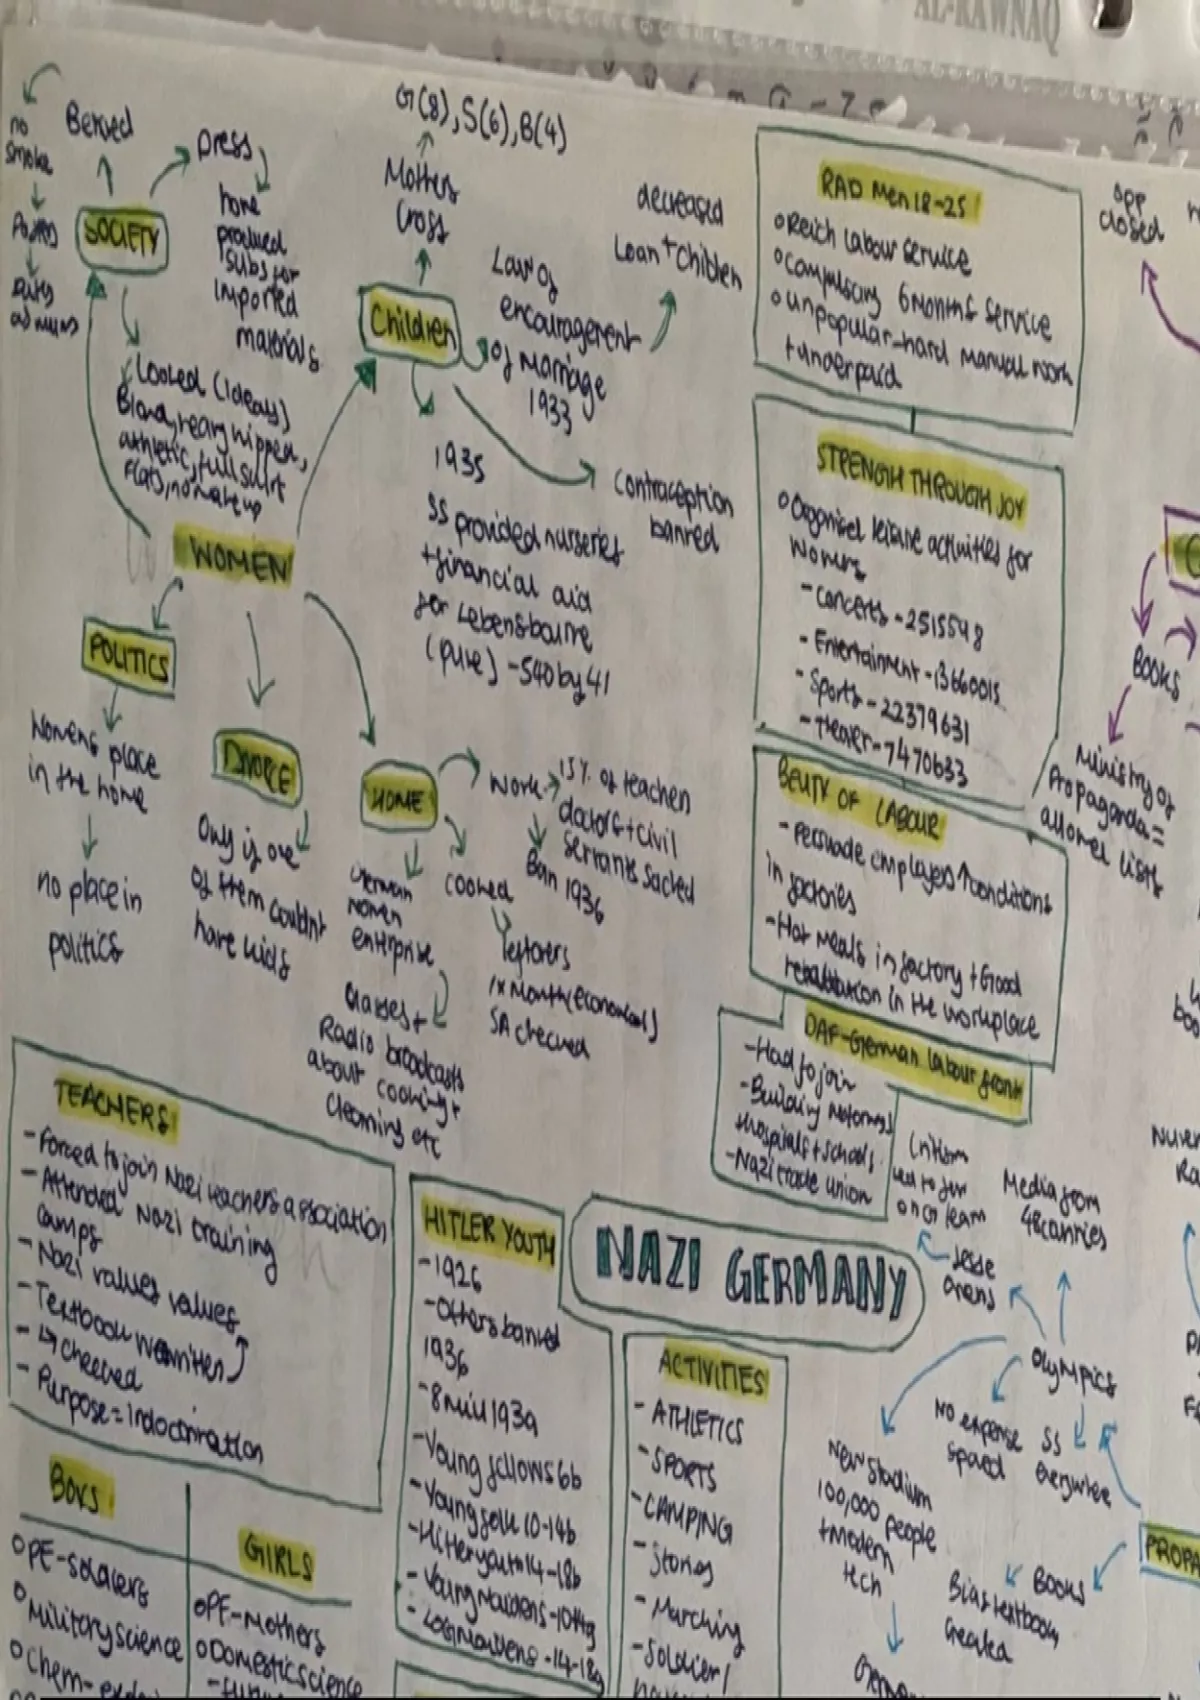 AL-RAWNAQ
no
smoke
Behved
Dress
SOCIETY
home
produced
subs for
imported
materials
Looked (ideals)
Blond, heavy hipped,
athletic, full skirt
flats, no makeup
WOMEN
G(8), S(6), B(4)
Mothers
Cross
Children
Law of
encouragement
of Marriage
1933
decreased
Loan + Children
1935
SS provided nurseries
+ financial aid
for Lebensbourne
(pure) - 540 by 41
Contraception
banned
POLITICS
Womens place
in the home
no place in
politics
DIVORCE
Only if one
of them couldnt
have kids
HOME
Work → 15% of teachers
doctors + civil
servants sacked
Ban 1936
cooked
leftovers
1x Month (economical)
SA checked
German
women
enterprise
classes +
Radio broadcasts
about cooking +
cleaning etc
RAD Men 18-25!
o Reich Labour Service
o compulsory 6 months service
o unpopular - hard manual work
+ underpaid
STRENGTH THROUGH JOY
o Organised leisure activities for
workers
- concerts - 2515598
- Entertainment - 13660015
- Sports - 22379631
- theater - 7470633
BEUTY OF LABOUR
- Persuade employers ↑ conditions
in factories
- Hot meals in factory + Good
in the workplace
DAF - German labour front
- Had to join
- Building motorways
hospitals + schools
- Nazi trade union
TEACHERS!
- Forced to join Nazi teachers association
- Attended Nazi training
camps
- Nazi values values
- Textbook rewritten
- ↳ checked
- Purpose = Indoctrination
BOYS!
o PE - soldiers
o Military science
o Chem-
GIRLS
o PE - Mothers
o Domestic science
HITLER YOUTH
- 1926
- Others banned
1936
- 8 mill 1939
- Young fellows 6b
- Young folk 10-14b
- Hitler youth 14-18b
- Young Maidens - 10-14g
- Maidens - 14-18g
NAZI GERMANY
ACTIVITIES
- ATHLETICS
- SPORTS
- CAMPING
- Stories
- Marching
- Soldier/
on as team
Media from
48 countries
Jesse
Owens
Olympics
No expense
spared
SS
everywhere
New stadium
100,000 people
+ modern
tech
Books
Bias textbook
PROPA
opp
closed
BOOKS
Ministry of
Propaganda =
allowed lists